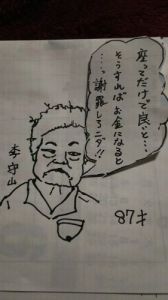 座ってだけで良いと…
そうすればお金になると
……謝罪しろニダ!!
李守山
87才